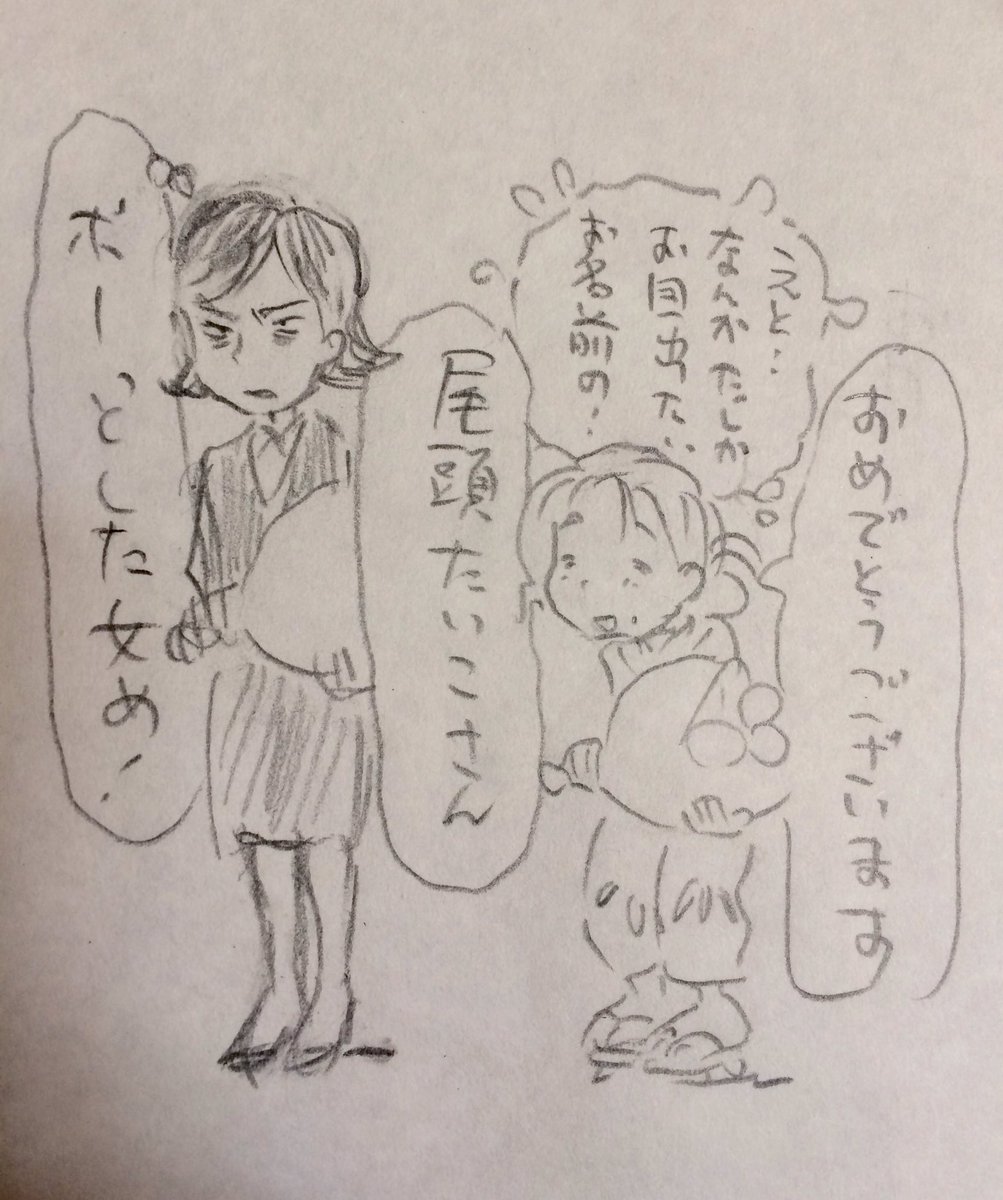 おめでとうございます
えと…
なんかたしか
お目出たい
お名前の…
尾頭たいこさん
ボーっとした女め、